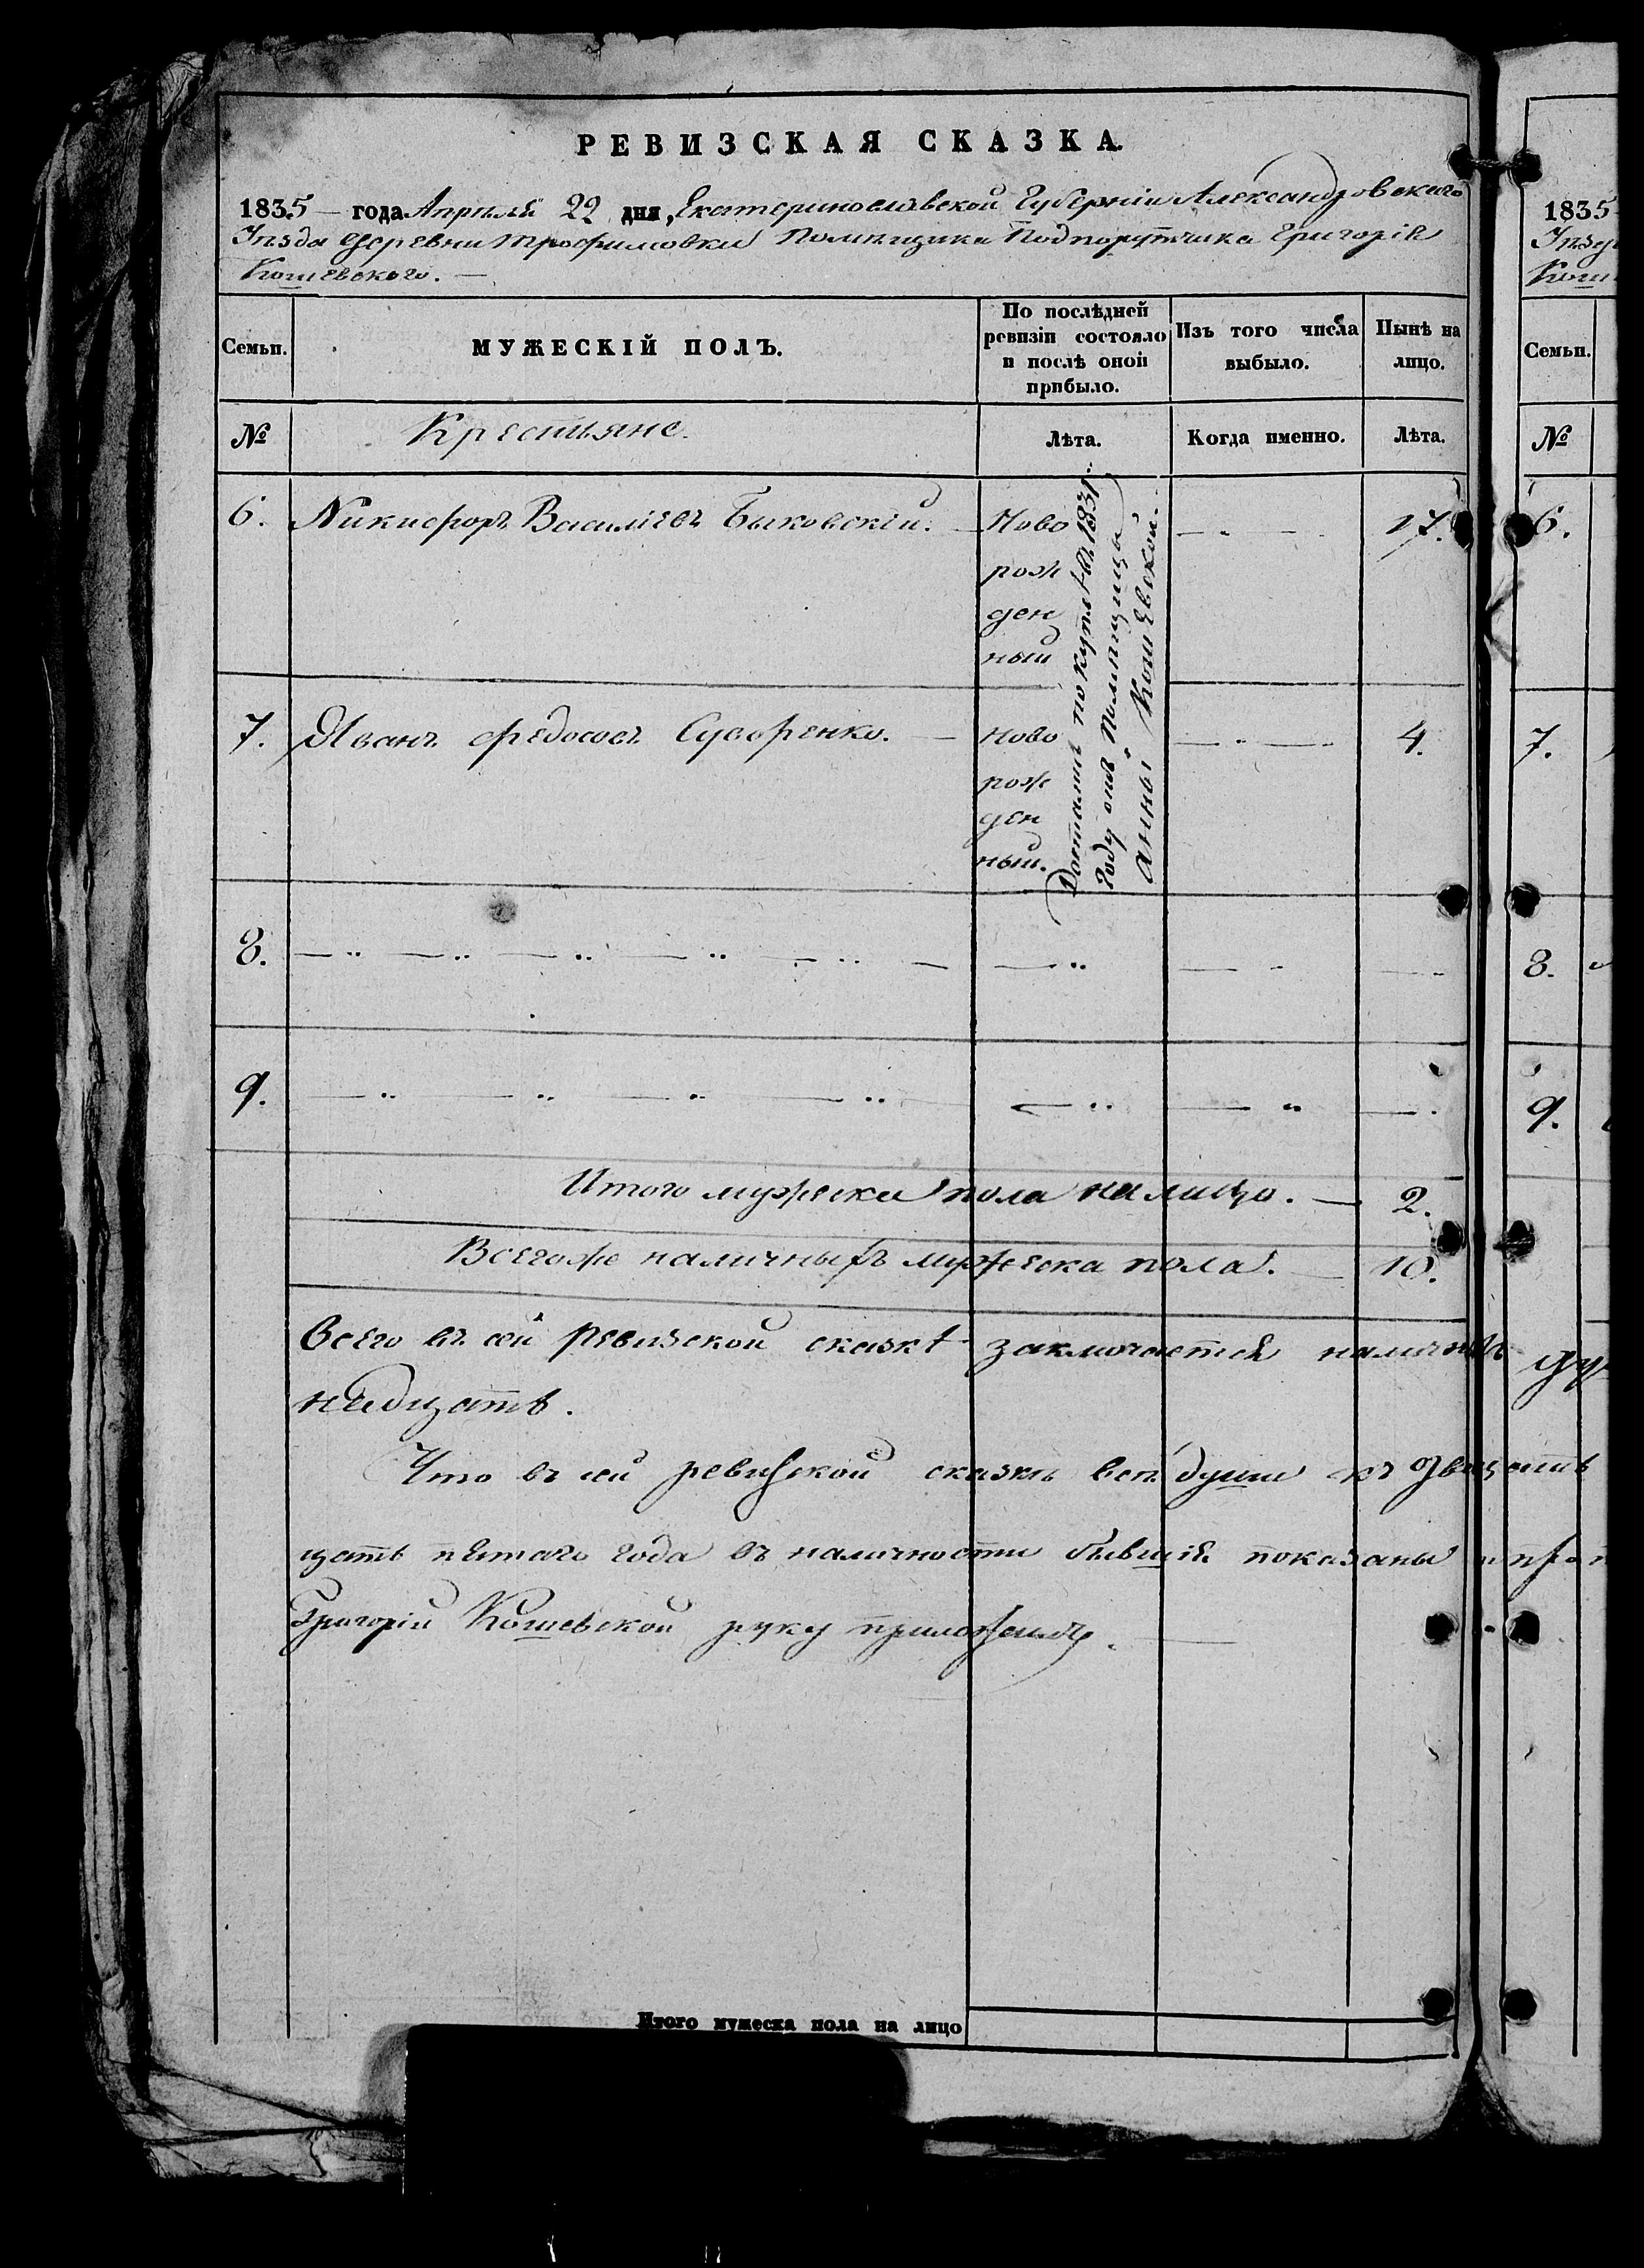 РЕВИЗСКАЯ СКАЗКА.
1835 года Апреля 22 дня, Екатеринославской Губерніи Александровскаго
Уѣзда деревни Трофимовки Помѣщика Подпорутчика Григорія
Кошевского.
Семьи.
МУЖЕСКІЙ ПОЛЪ.
По послѣдней
ревизіи состояло
и послѣ оной
прибыло.
Изъ того числа
выбыло.
Нынѣ на
лицо.
№
Крестьяне.
Лѣта.
Когда именно.
Лѣта.
6. Никифоръ Василіевъ Быковскій. Ново 17.
рож
ден
ный
7. Иванъ Федосовъ Суворенко. ново 4.
рож
ден
ный.
Достались по куплѣ въ 1831
Году отъ Помѣщицы
Анны Кошевской.
8.
9.
Итого мужеска пола на лицо. 2.
Всегоже наличныхъ мужеска пола. 10.
Всего въ сей Ревизской сказкѣ заключается наличныхъ
надцать.
Что въ сей ревизской сказкѣ всѣ души къ
цать пятаго года въ наличности бывшія показаны и
Григорій Кошевской руку приложилъ.
Итого мужеска пола на лицо
1835
Уѣзд
Кош
Семьи.
№
6.
7.
8.
9.